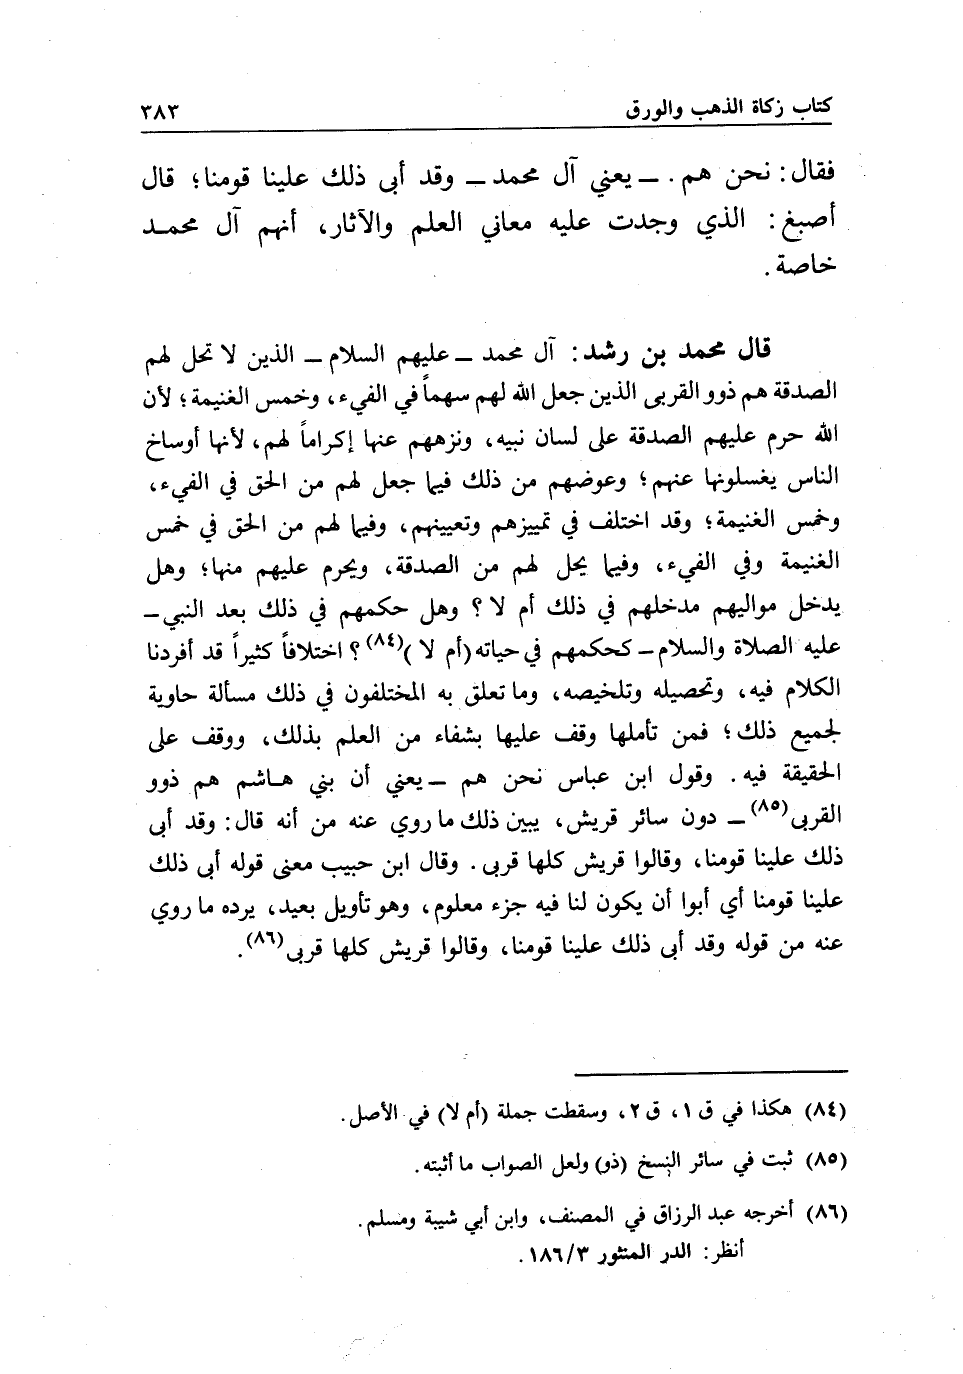 كتاب زكاة الذهب والورق ٣٨٣
فقال: نحن هم. ــ يعني آل محمد ــ وقد أبى ذلك علينا قومنا؛ قال
أصبغ: الذي وجدت عليه معاني العلم والآثار، أنهم آل محمد
خاصة.
قال محمد بن رشد: آل محمد ــ عليهم السلام ــ الذين لا تحل لهم
الصدقة هم ذوو القربى الذين جعل الله لهم سهماً في الفيء، وخمس الغنيمة؛ لأن
الله حرم عليهم الصدقة على لسان نبيه، ونزههم عنها إكراماً لهم، لأنها أوساخ
الناس يغسلونها عنهم؛ وعوضهم من ذلك فيما جعل لهم من الحق في الفيء،
وخمس الغنيمة؛ وقد اختلف في تمييزهم وتعيينهم، وفيما لهم من الحق في خمس
الغنيمة وفي الفيء، وفيما يحل لهم من الصدقة، ويحرم عليهم منها؛ وهل
يدخل مواليهم مدخلهم في ذلك أم لا؟ وهل حكمهم في ذلك بعد النبي ــ
عليه الصلاة والسلام ــ كحكمهم في حياته (أم لا)(٨٤)؟ اختلافاً كثيراً قد أفردنا
الكلام فيه، وتحصيله وتلخيصه، وما تعلق به المختلفون في ذلك مسألة حاوية
لجميع ذلك؛ فمن تأملها وقف عليها بشفاء من العلم بذلك، ووقف على
الحقيقة فيه. وقول ابن عباس نحن هم ــ يعني أن بني هاشم هم ذوو
القربى(٨٥) ــ دون سائر قريش، يبين ذلك ما روي عنه من أنه قال: وقد أبى
ذلك علينا قومنا، وقالوا قريش كلها قربى. وقال ابن حبيب معنى قوله أبى ذلك
علينا قومنا أي أبوا أن يكون لنا فيه جزء معلوم، وهو تأويل بعيد، يرده ما روي
عنه من قوله وقد أبى ذلك علينا قومنا، وقالوا قريش كلها قربى(٨٦).
(٨٤) هكذا في ق ١، ق ٢، وسقطت جملة (أم لا) في الأصل.
(٨٥) ثبت في سائر النسخ (ذو) ولعل الصواب ما أثبته.
(٨٦) أخرجه عبد الرزاق في المصنف، وابن أبي شيبة ومسلم.
أنظر: الدر المنثور ١٨٦/٣.